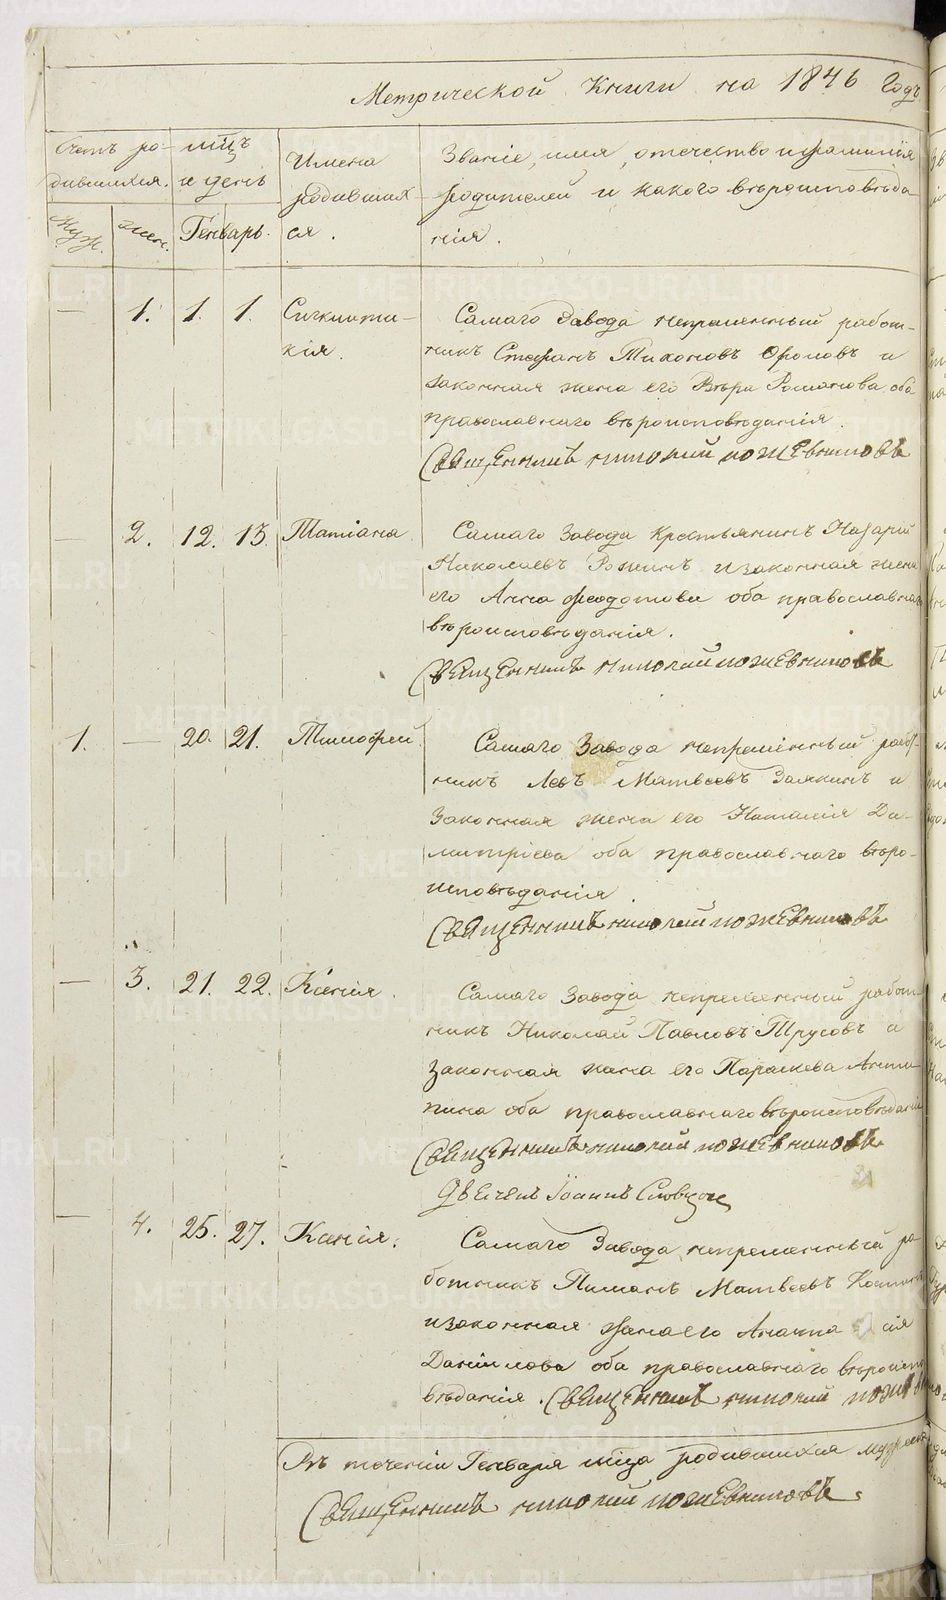 Метрической Книги на 1846 Годъ
Счетъ ро-
дившихся.
мцъ
и день
Имена
родивших
ся.
Званіе, имя, отечество и фамилія
родителей и какого вѣроисповѣда
нія.
Муж.
жен.
Генварь.
— 1. 1. 1. Сигклити-
кія.
Самаго Завода непременный работ-
никъ Стефанъ Тихоновъ Фроловъ и
законная жена его Вѣра Романова оба
православнаго вѣроисповѣданія.
Священникъ Николай Кожевниковъ
— 2. 12. 13. Татіана
Самаго Завода Крестьянинъ Назарій
Николаевъ и законная жена
его Анна Феодотова оба православнаго
вѣроисповѣданія.
Священникъ Николай Кожевниковъ
1. — 20. 21. Тимофей.
Самаго Завода непременный работ
никъ Левъ Матвеевъ Замкинъ и
Законная жена его Наталія Ди-
митріева оба православнаго вѣро-
исповѣданія.
Священникъ Николай Кожевниковъ
— 3. 21. 22. Ксенія.
Самаго Завода непременный работ
никъ Николай Павловъ Трусовъ и
законная жена его Параскева Анти-
пина оба православнаго вѣроисповѣданія
Священникъ Николай Кожевниковъ
Іоаннъ
— 4. 25. 27. Ксенія.
Самаго Завода непременный ра
ботникъ Пиманъ Матвеевъ
и законная жена его сія
Даниилова оба православнаго вѣроиспо
вѣданія. Священникъ Николай Кожев
Въ теченіи Генваря мца родившихся мужеска
Священникъ Николай Кожевниковъ.
METRIKI.GASO-URAL.RU